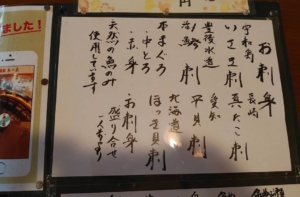 ました!
お刺身
宇和島
いさき刺
長崎
真だこ刺
豊後水道
活鯵刺
愛知
平貝刺
本まぐろ
・中とろ
・赤身
北海道
ほっき貝刺
天然の魚のみ
使用しています
お刺身
盛り合せ